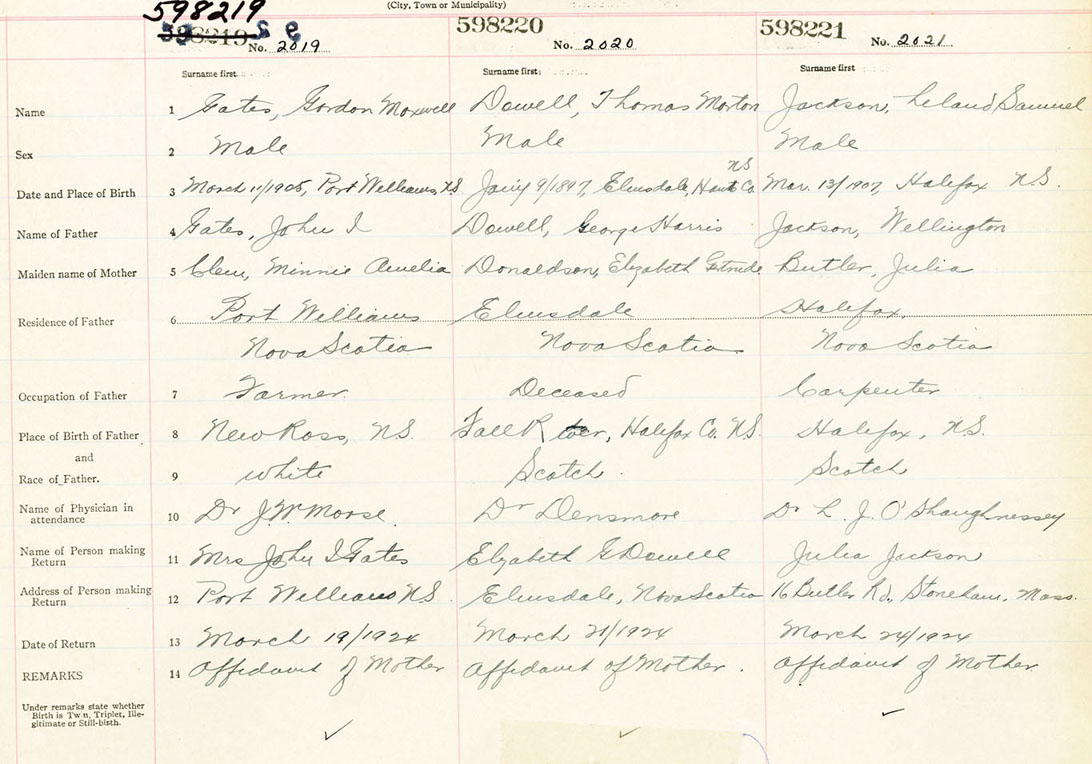 (City, Town or Municipality)
598219 598220 598221
598219 No. 2019 No. 2020 No. 2021
Surname first Surname first Surname first
Name 1 Gates, Gordon Maxwell Dowell, Thomas Morton Jackson, Leland Samuel
Sex 2 Male Male Male
N.S.
Date and Place of Birth 3 March 11/1905, Port Williams, N.S. Jan'y 9/1897, Elmsdale, Hants Co. Mar. 12/1907, Halifax N.S.
Name of Father 4 Gates, John I Dowell, George Harris Jackson, Wellington
Maiden name of Mother 5 Clem, Minnie Amelia Donaldson, Elizabeth Gertrude Butler, Julia
Residence of Father 6 Port Williams Elmsdale Halifax,
Nova Scotia Nova Scotia Nova Scotia
Occupation of Father 7 Farmer Deceased Carpenter
Place of Birth of Father 8 New Ross, N.S. Fall River, Halifax Co. N.S. Halifax, N.S.
and
Race of Father. 9 white Scotch Scotch
Name of Physician in
attendance 10 Dr J.W. Morse. Dr Densmore Dr L. J. O'Shaughnessey
Name of Person making
Return 11 Mrs John I Gates Elizabeth G Dowell Julia Jackson
Address of Person making
Return 12 Port Williams N.S. Elmsdale, Nova Scotia 16 Butler Rd., Stoneham, Mass.
Date of Return 13 March 19/1924 March 21/1924 March 24/1924
REMARKS 14 Affidavit of Mother Affidavit of Mother. Affidavit of Mother
Under remarks state whether
Birth is Twin, Triplet, Ille-
gitimate or Still-birth.